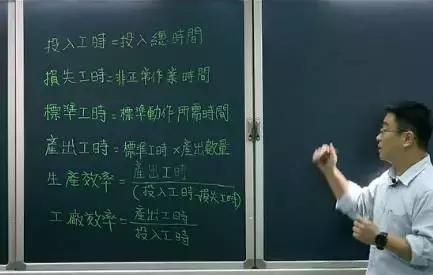 投入工時=投入總時間
損失工時=非正常作業時間
標準工時=標準動作所需時間
產出工時=標準工時×產出數量
生產效率=產出工時/(投入工時-損失工時)
工廠效率=產出工時/投入工時